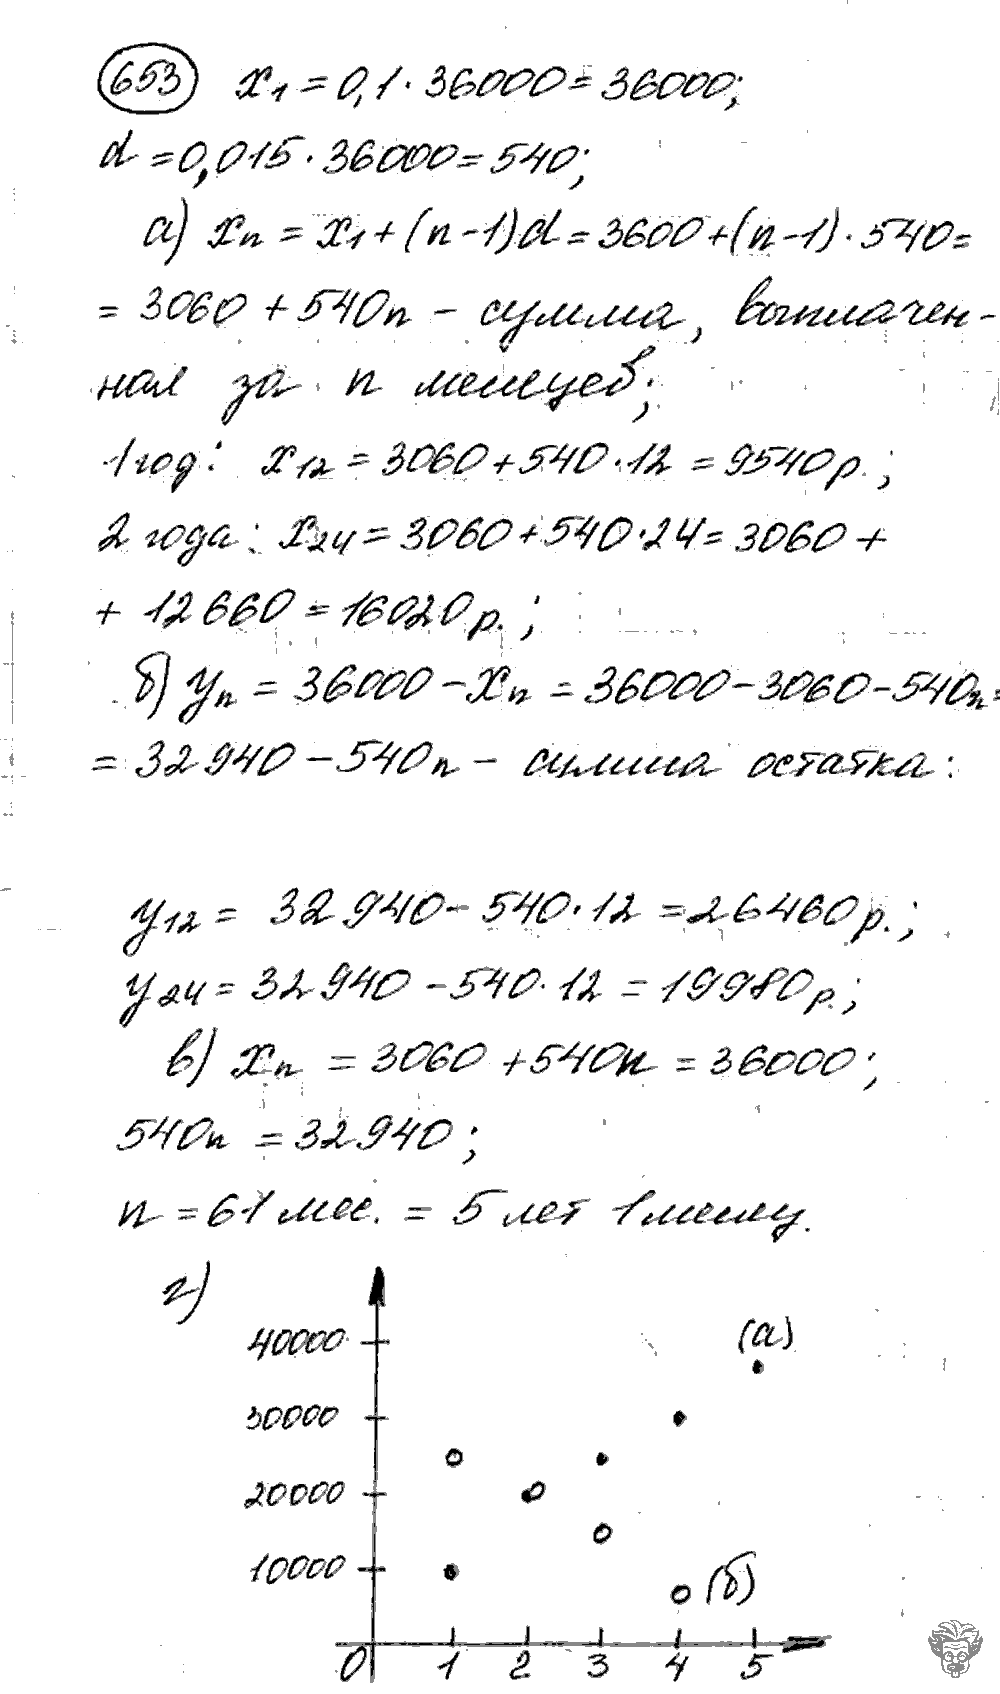 653 x₁ = 0,1 · 36000 = 36000;
d = 0,015 · 36000 = 540;
а) xₙ = x₁ + (n-1)d = 3600 + (n-1) · 540 =
= 3060 + 540n - сумма, выплачен-
ная за n месяцев;
1 год: x₁₂ = 3060 + 540 · 12 = 9540 р.;
2 года: x₂₄ = 3060 + 540 · 24 = 3060 +
+ 12660 = 16020 р.;
б) yₙ = 36000 - xₙ = 36000 - 3060 - 540n =
= 32940 - 540n - сумма остатка:
y₁₂ = 32940 - 540 · 12 = 26460 р.;
y₂₄ = 32940 - 540 · 12 = 19980 р.;
в) xₙ = 3060 + 540n = 36000;
540n = 32940;
n = 61 мес. = 5 лет 1 месяц.
г)
40000 (а)
30000
20000
10000 (б)
0 1 2 3 4 5